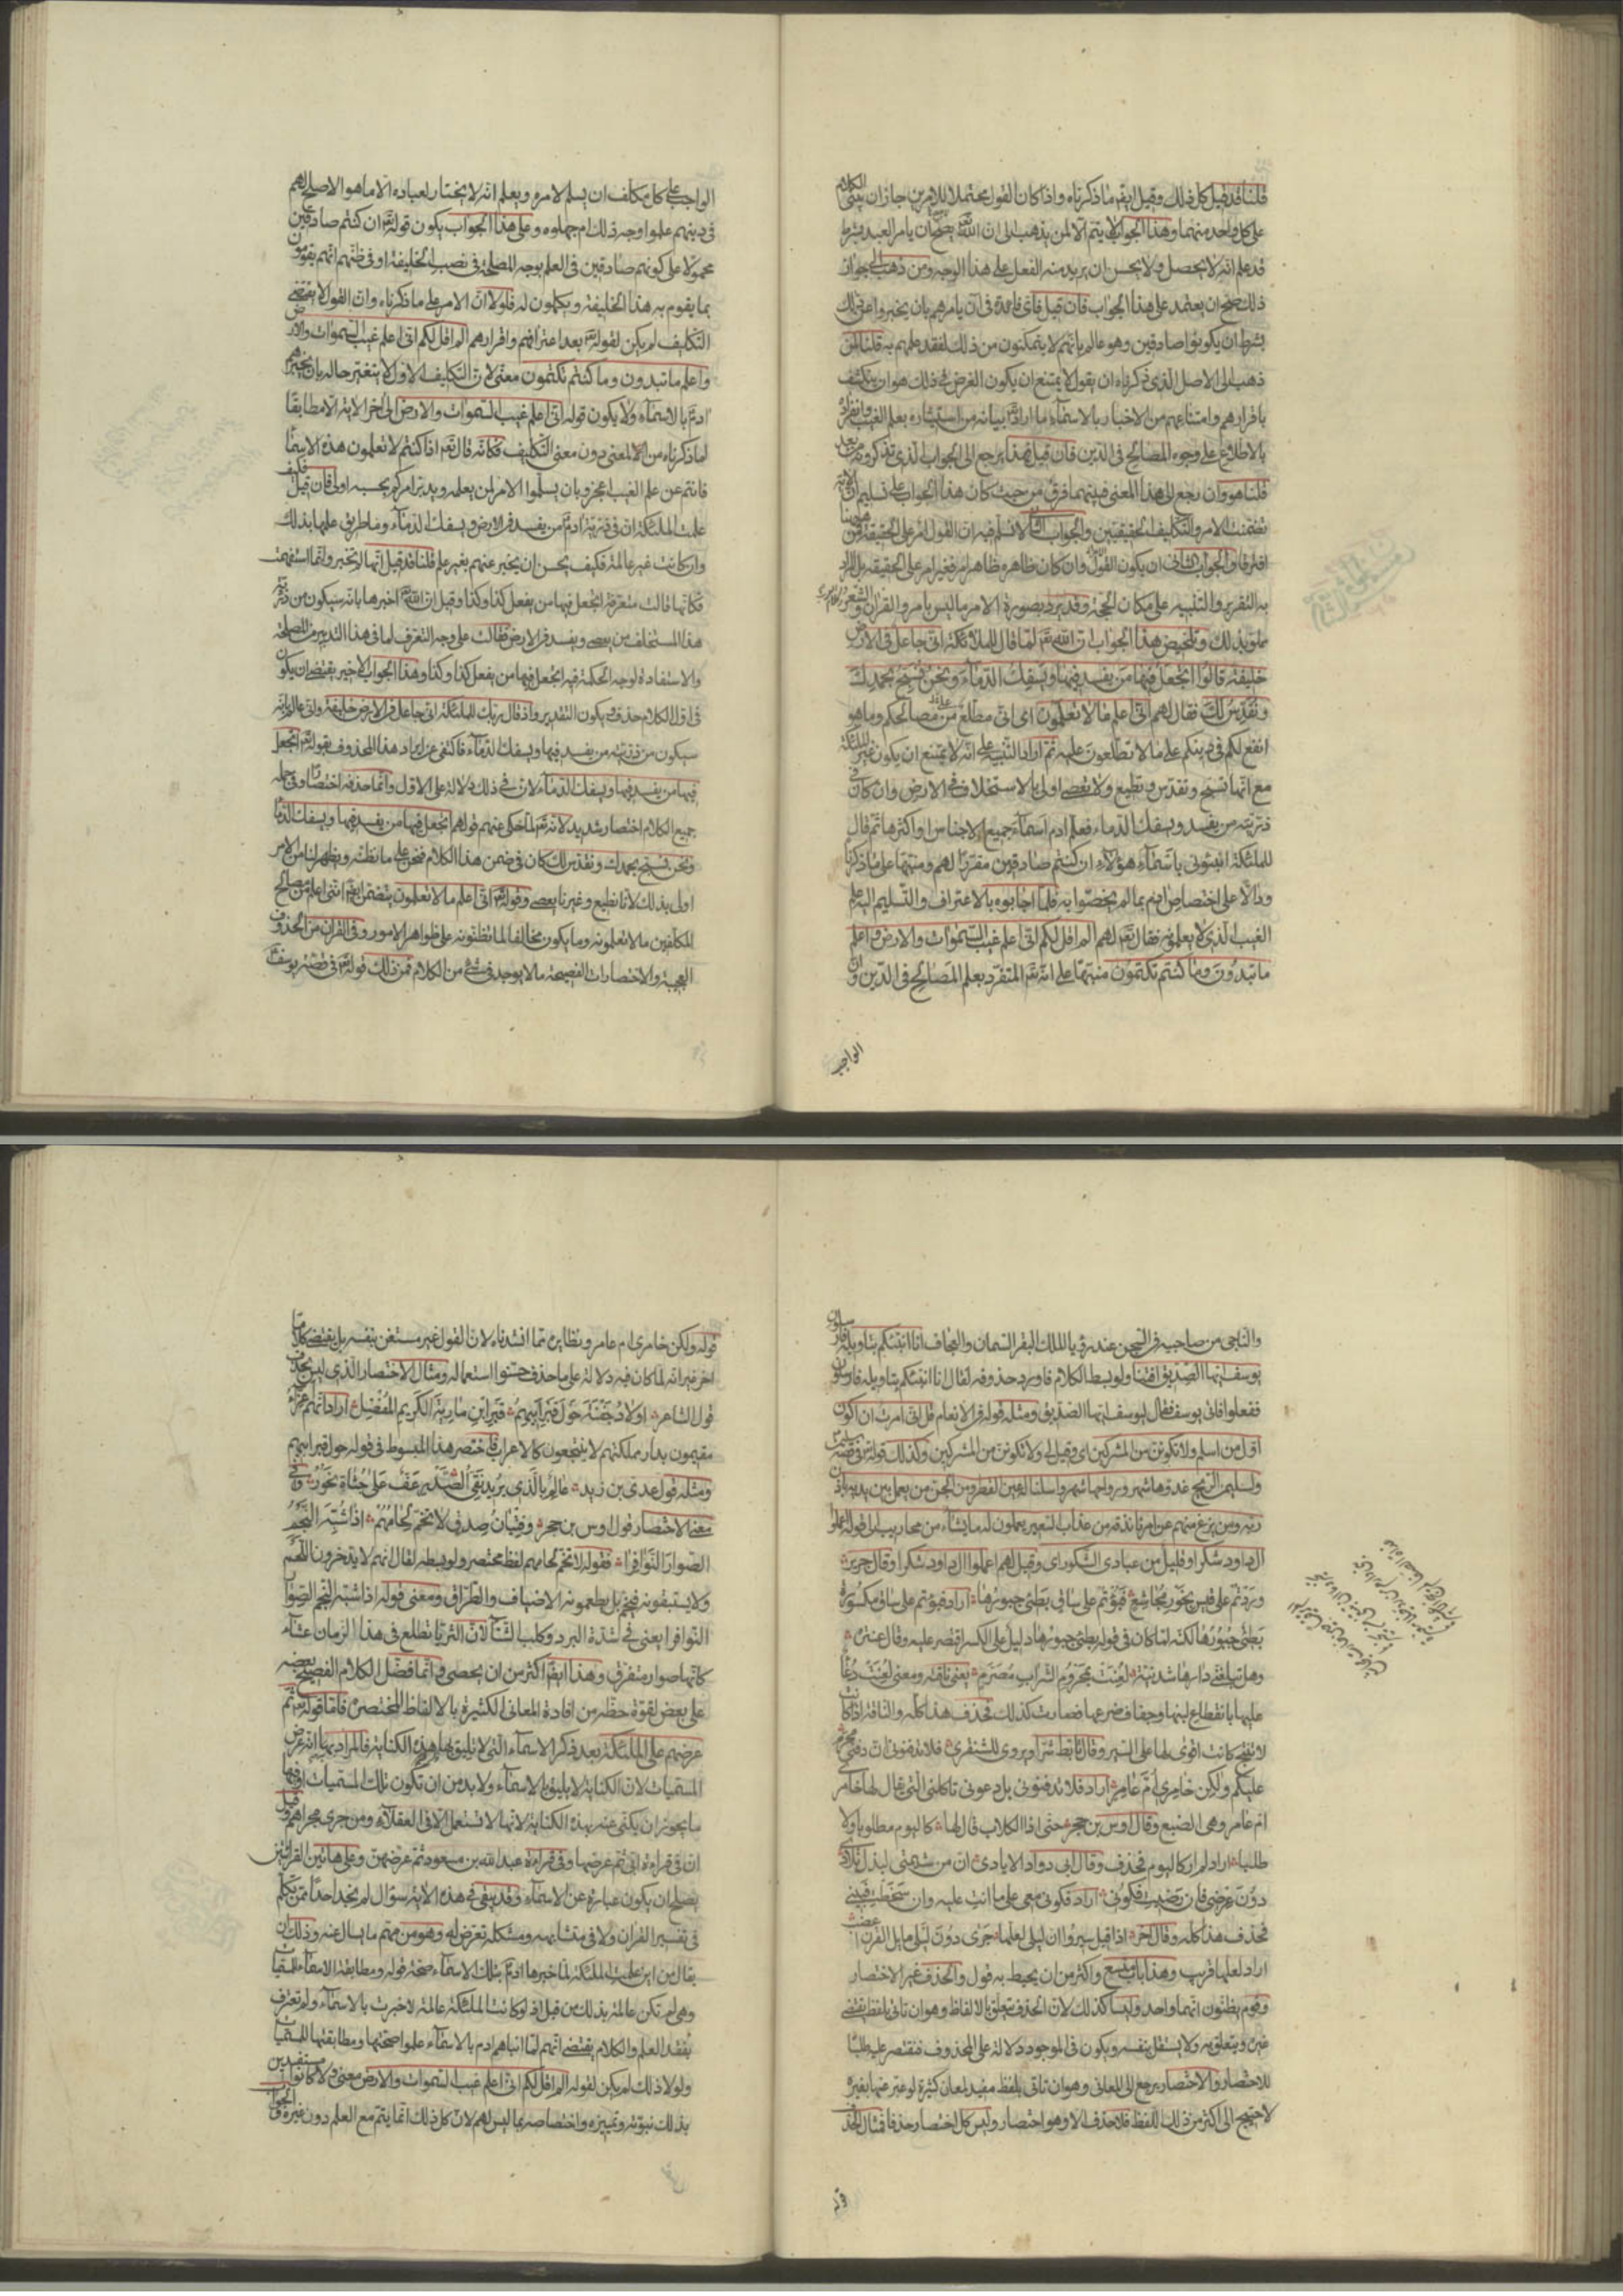 قلنا قد قيل كل ذلك وقيل ايضا ما ذكرناه واذا كان القول محتملا للامرين جاز ان يبنى الكلام
على كل واحد منهما وهذا الجواب لا يتم الا لمن يذهب الى ان الله تع يصح ان يامر العبد بشرط
قد علم انه لا يحصل ولا يحسن ان يريد منه الفعل على هذا الوجه ومن ذهب الى جواز
ذلك صح ان يعتمد على هذا الجواب فان قيل فاى فائدة فى ان يامرهم بان يخبروا عن ذلك
بشرط ان يكونوا صادقين وهو عالم بانهم لا يتمكنون من ذلك لفقد علمهم به قلنا لمن
ذهب الى الاصل الذى ذكرناه ان يقول لا يمتنع ان يكون الغرض فى ذلك هو ان ينكشف
باقرارهم وامتناعهم من الاخبار بالاسماء ما اراد تع بيانه من استيثاره بعلم الغيب وانفراده
بالاطلاع على وجوه المصالح فى الدين فان قيل فهذا يرجع الى الجواب الذى تذكرونه من بعد
قلنا هو وان رجع الى هذا المعنى فبينهما فرق من حيث كان هذا الجواب على تسليم ان الاية
تضمنت الامر والتكليف الحقيقيين والجواب الثانى لا نسلم فيه ان القول امر على الحقيقة فمن هيهنا
افترقا والجواب الثانى ان يكون القول وان كان ظاهره ظاهر امر فغير امر على الحقيقة بل المراد
به التقرير والتنبيه على مكان الحجة وقد يرد بصورة الامر ما ليس بامر والقران والشعر وكلام العرب
مملو بذلك وتلخيص هذا الجواب ان الله تع لما قال للملائكة انى جاعل فى الارض
خليفة قالوا اتجعل فيها من يفسد فيها ويسفك الدماء ونحن نسبح بحمدك
ونقدس لك فقال لهم انى اعلم ما لا تعلمون اى انى مطلع من مصالحكم وما هو
انفع لكم فى دينكم على ما لا تطلعون عليه ثم اراد التنبيه على انه لا يمتنع ان يكون غير الملئكة
مع انها تسبح وتقدس وتطيع ولا تعصى اولى بالاستخلاف فى الارض وان كان فى
ذريته من يفسد ويسفك الدماء فعلم ادم اسماء جميع الاجناس او اكثرها ثم قال
للملئكة انبئونى باسماء هؤلاء ان كنتم صادقين مقررا لهم ومنبها على ما ذكرناه
ودالا على اختصاص ادم بما لم يخصوا به فلما اجابوه بالاعتراف والتسليم اليه علم
الغيب الذى لا يعلمونه فقال تع لهم الم اقل لكم انى اعلم غيب السموات والارض واعلم
ما تبدون وما كنتم تكتمون منبها على انه تع المتفرد بعلم المصالح فى الدين وان
الواجب
الواجب على كل مكلف ان يسلم لامره ويعلم انه لا يختار لعباده الا ما هو الاصلح لهم
فى دينهم علموا وجه ذلك ام جهلوه وعلى هذا الجواب يكون قوله تع ان كنتم صادقين
محمولا على كونهم صادقين فى العلم بوجه المصلحة فى نصب الخليفة او فى ظنهم انهم يقومون
بما يقوم به هذا الخليفة ويكملون له فلولا ان الامر على ما ذكرناه وان القول لا يقتضى
التكليف لم يكن لقوله تع بعد اعترافهم واقرارهم الم اقل لكم انى اعلم غيب السموات والارض
واعلم ما تبدون وما كنتم تكتمون معنى لان التكليف الاول لا يتغير حاله بان يخبرهم
ادم بالاسماء ولا يكون قوله انى اعلم غيب السموات والارض الى اخر الاية الا مطابقا
لما ذكرناه من المعنى دون معنى التكليف فكانه قال تع اذا كنتم لا تعلمون هذه الاسماء
فانتم عن علم الغيب اعجز وبان يسلموا الامر لمن يعلمه ويدبر امركم بحسبه اولى فان قيل فكيف
علمت الملئكة ان فى ذرية ادم من يفسد فى الارض ويسفك الدماء وما طريق علمها بذلك
وان كانت غير عالمة فكيف يحسن ان يخبر عنهم بغير علم قلنا قد قيل انها لم تخبر وانما استفهمت
فكانها قالت متعرفة اتجعل فيها من يفعل كذا وكذا وقيل ان الله تع اخبرها بانه سيكون من ذرية
هذا المستخلف من يعصى ويفسد فى الارض فقالت على وجه التعرف لما فى هذا التدبير من المصلحة
والاستفادة لوجه الحكمة فيه اتجعل فيها من يفعل كذا وكذا وهذا الجواب الاخير يقتضى ان يكون
فى اول الكلام حذف ويكون التقدير واذ قال ربك للملئكة انى جاعل فى الارض خليفة وانى عالم بانه
سيكون من ذريته من يفسد فيها ويسفك الدماء فاكتفى عن ايراد هذا المحذوف بقوله تع اتجعل
فيها من يفسد فيها ويسفك الدماء لان فى ذلك دلالة على الاول وانما حذفه اختصارا وفى جملة
جميع الكلام اختصار شديد لانه تع لما حكى عنهم قولهم اتجعل فيها من يفسد فيها ويسفك الدماء
ونحن نسبح بحمدك ونقدس لك كان فى ضمن هذا الكلام فنحن على ما نظنه ويظهر لنا من الامر
اولى بذلك لانا نطيع وغيرنا يعصى وقوله تع انى اعلم ما لا تعلمون يتضمن ايضا اننى اعلم من مصالح
المكلفين ما لا تعلمونه وما يكون مخالفا لما تظنونه على ظواهر الامور وفى القران من الحذوف
العجيبة والاختصارات الفصيحة ما لا يوجد فى شئ من الكلام فمن ذلك قوله تع فى قصة يوسف
والناجى من صاحبيه فى السجن عند رؤيا الملك البقر السمان والعجاف انا انبئكم بتاويله فارسلون
يوسف ايها الصديق افتنا ولو بسط الكلام فاورد محذوفه لقال انا انبئكم بتاويله فارسلون
ففعلوا فاتى يوسف فقال ليوسف ايها الصديق ومثله قوله فى الانعام قل انى امرت ان اكون
اول من اسلم ولا تكونن من المشركين اى وقيل لى ولا تكونن من المشركين وكذلك قوله تع فى قصة سليمن
ولسليمن الريح غدوها شهر ورواحها شهر واسلنا له عين القطر ومن الجن من يعمل بين يديه باذن
ربه ومن يزغ منهم عن امرنا نذقه من عذاب السعير يعملون له ما يشاء من محاريب الى قوله اعملوا
ال داود شكرا وقليل من عبادى الشكور اى وقيل لهم اعملوا ال داود شكرا وقال جرير
وردتم على قيس بخور مجاشع فبؤتم على ساق بطئ جبورها اراد فبؤتم على ساق مكسورة
بطئ جبورها لكنه لما كان فى قوله بطئ جبورها دليل على الكسر اقتصر عليه وقال عنترة
وهل تبلغنى دارها شدنية لعنت بمحروم الشراب مصرم يعنى ناقته ومعنى لعنت دعا
عليها بانقطاع لبنها وجفاف ضرعها فصارت كذلك فحذف هذا كله والناقة اذا كانت
لا تنتج كانت اقوى لها على السير وقال تابط شرا ويروى للشنفرى فلا تدفنونى ان دفنى محرم
عليكم ولكن خامرى ام عامر اراد فلا تدفنونى بل دعونى تاكلنى التى يقال لها خامرى
ام عامر وهى الضبع وقال اوس بن حجر حتى اذا الكلاب قال لها كاليوم مطلوبا ولا
طلبا اراد لم ار كاليوم فحذف وقال ابى دواد الايادى ان من شيمتى لبذل تلادى
دون عرضى فان رضيت فكونى اراد فكونى معى على ما انت عليه وان سخطت فبينى
فحذف هذا كله وقال اخر اذا قيل سيروا ان ليلى لعلها جرى دون ليلى مايل القرن اعضب
اراد لعلها قريب وهذا باب متسع واكثر من ان يحيط به قول والحذف غير الاختصار
وقوم يظنون انهما واحد وليسا كذلك لان الحذف يتعلق بالالفاظ وهو ان تاتى بلفظ يقتضى
غيره ويتعلق به ولا يستقل بنفسه ويكون فى الموجود دلالة على المحذوف فتقتصر عليه طلبا
للاختصار والاختصار يرجع الى المعانى وهو ان تاتى بلفظ مفيد لمعان كثيرة لو عبر عنها بغيره
لاحتيج الى اكثر من ذلك اللفظ فلا حذف الا وهو اختصار وليس كل اختصار حذفا فمثال الحذف
قوله
قوله ولكن خامرى ام عامر ونظايره مما انشدناه لان القول غير مستغن بنفسه بل يقتضى كلاما
اخر غير انه لما كان فيه دلالة على ما حذف حسنوا استعماله ومثال الاختصار الذى ليس بحذف
قول الشاعر اولاد جفنة حول قبر ابيهم قبر ابن مارية الكريم المفضل اراد انهم اعزاء
مقيمون بدار مملكتهم لا ينتجعون كالاعراب فاختصر هذا المبسوط فى قوله حول قبر ابيهم
ومثله قول عدى بن زيد عالم بالذى يريد نقى الصدر عف على جثاه نحور وفى
معنى الاختصار قول اوس بن حجر وفتيان صدق لا تخم لحامهم اذا شبه النجم
الصوار النوافرا فقوله لا تخم لحامهم لفظ مختصر ولو بسطه لقال انهم لا يدخرون اللحم
ولا يستبقونه فيخم بل يطعمونه الاضياف والطراق ومعنى قوله اذا شبه النجم الصوار
النوافرا يعنى فى شدة البرد وكلب الشتاء لان الثريا تطلع فى هذا الزمان عشاء
كانها صوار متفرق وهذا ايضا اكثر من ان يحصى وانما فضل الكلام الفصيح بعضه
على بعض لقوة حظه من افادة المعانى الكثيرة بالالفاظ المختصرة فاما قوله تع ثم
عرضهم على الملئكة بعد ذكر الاسماء التى لا تليق بها هذه الكناية فالمراد بها انه عرض
المسميات لان الكناية لا تليق بالاسماء ولا بد من ان تكون تلك المسميات او فيها
ما يجوز ان يكنى عنه بهذه الكناية لانها لا تستعمل الا فى العقلاء ومن جرى مجراهم وقيل
ان فى قراءة ابى ثم عرضها وفى قراءة عبد الله بن مسعود ثم عرضهن وعلى هاتين القراءتين
يصلح ان يكون عبارة عن الاسماء وقد بقى فى هذه الاية سؤال لم نجد احدا ممن تكلم
فى تفسير القران ولا فى متشابهه ومشكله تعرض له وهو من مهم ما يسال عنه وذلك ان
يقال من اين علمت الملئكة لما خبرها ادم بتلك الاسماء صحة قوله ومطابقة الاسماء للمسميات
وهى لم تكن عالمة بذلك من قبل اذ لو كانت الملئكة عالمة لاخبرت بالاسماء ولم تعترف
بفقد العلم والكلام يقتضى انهم لما انباهم ادم بالاسماء علموا صحتها ومطابقتها للمسميات
ولولا ذلك لم يكن لقوله الم اقل لكم انى اعلم غيب السموات والارض معنى ولا كانوا مستفيدين
بذلك نبوته وتمييزه واختصاصه بما ليس لهم لان كل ذلك انما يتم مع العلم دون غيره والجواب